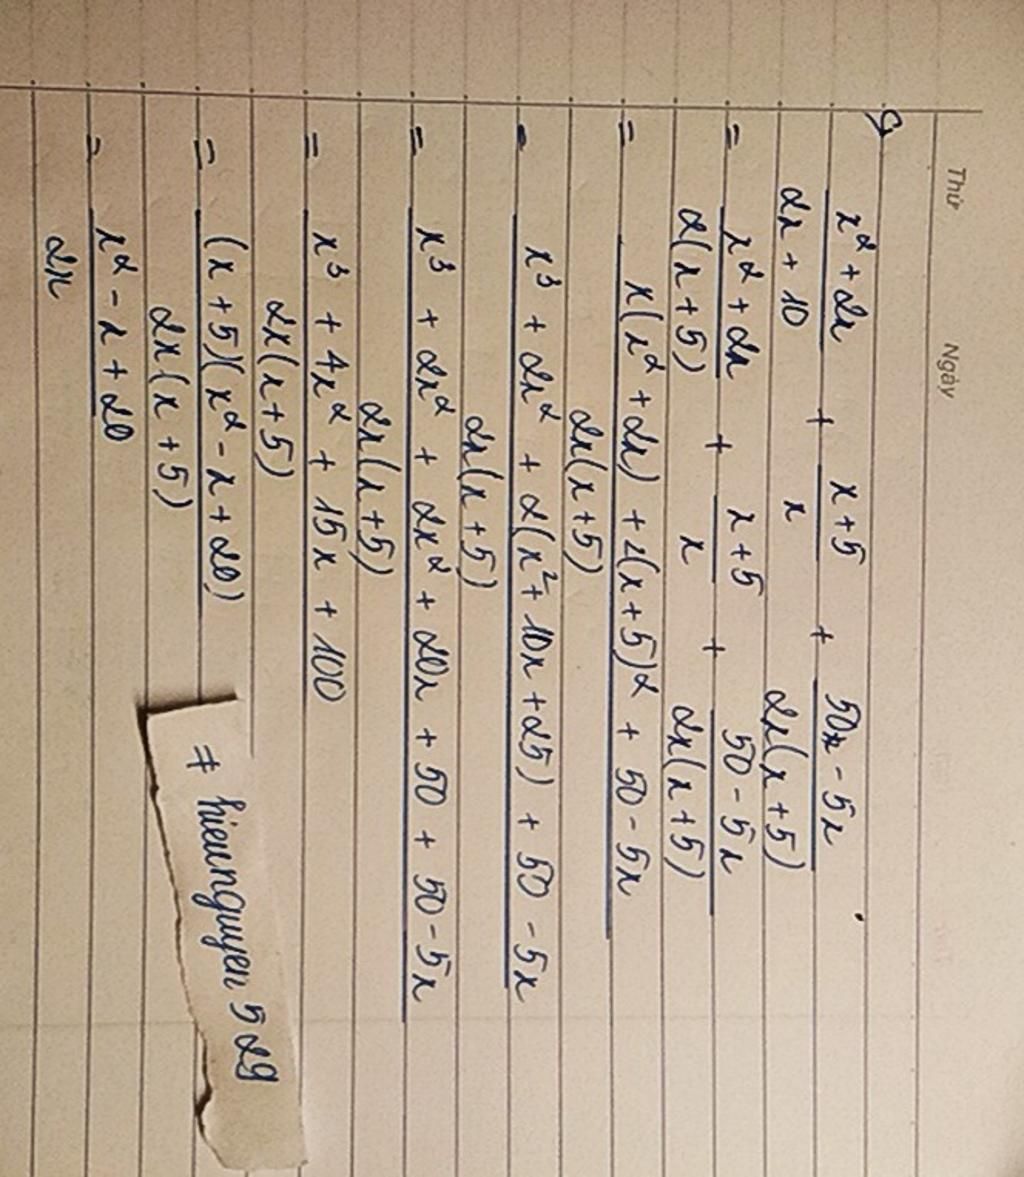 Thứ Ngày
g) (x² + 2x)/(2x + 10) + (x + 5)/x + (50x - 5x)/(2x(x + 5))
= (x² + 2x)/(2(x + 5)) + (x + 5)/x + (50 - 5x)/(2x(x + 5))
= (x(x² + 2x) + 2(x + 5)² + 50 - 5x)/(2x(x + 5))
= (x³ + 2x² + 2(x² + 10x + 25) + 50 - 5x)/(2x(x + 5))
= (x³ + 2x² + 2x² + 20x + 50 + 50 - 5x)/(2x(x + 5))
= (x³ + 4x² + 15x + 100)/(2x(x + 5))
= ((x + 5)(x² - x + 20))/(2x(x + 5))
= (x² - x + 20)/(2x)
≠ hieunguyen 529